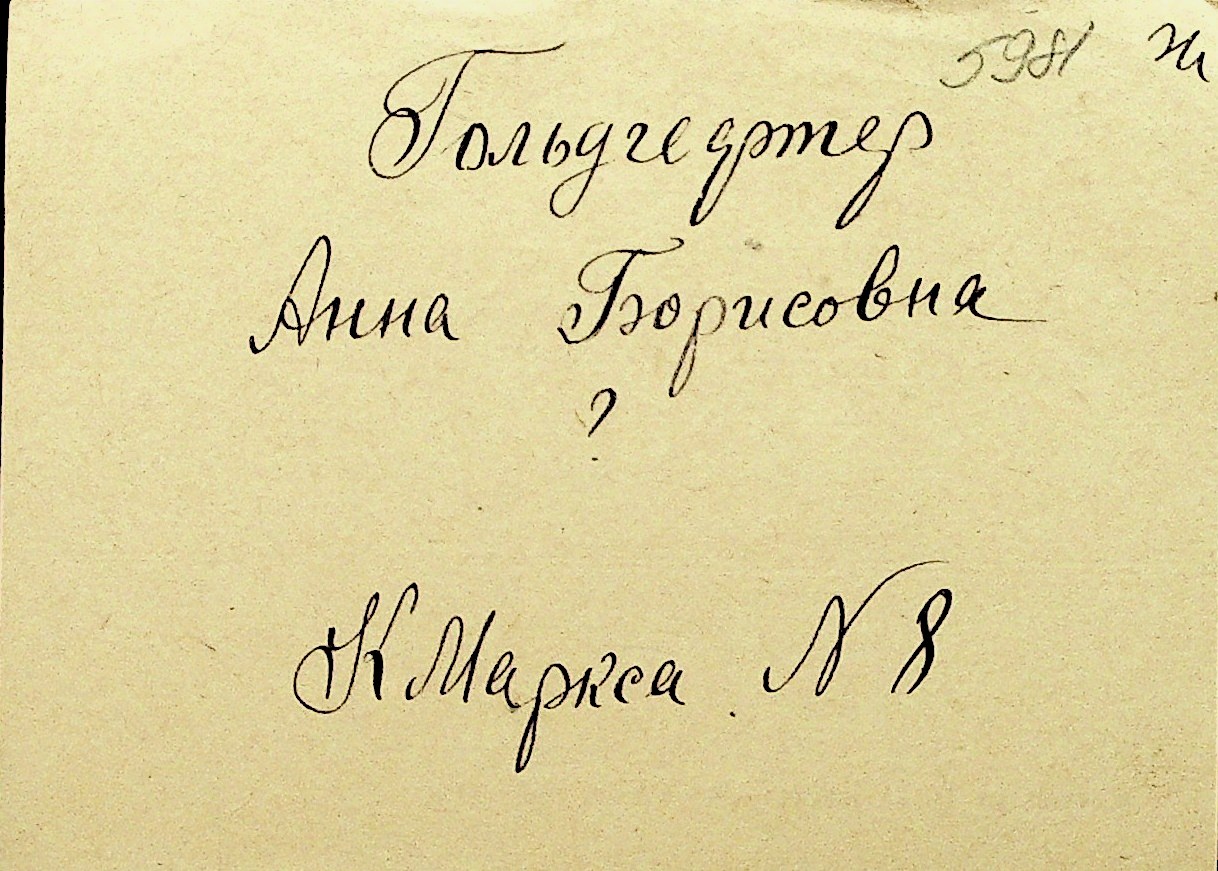 5981 Ж
Гольдгефтер
Анна Борисовна
?
К Маркса N 8